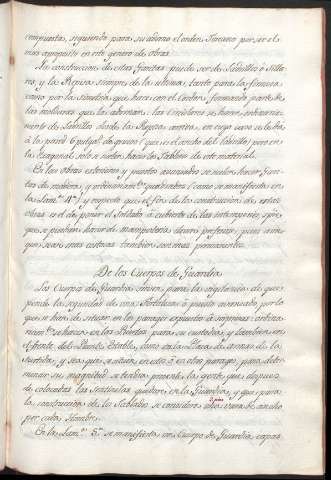 compuestas, siguiendo para su adorno el orden Toscano por ser el
mas aproposito en este genero de obras.
La construccion de estas Garitas puede ser de Ladrillos ò Silla
res, y la Repisa siempre de la ultima, tanto para la firmeza
como por la que hace con el Cordon, formando parte de
las molduras que la adornan: las Circulares se hacen
mente de Ladrillo desde la Repisa arriba, en cuyo caso se les da
à la pared 6 pulgs. de grueso (que es el ancho del Ladrillo) pero en
la Exagonal solo se suelen hacer los Tabiques de este material.
En las obras exteriores y puestos avanzados se suelen hacer Gari
tas de madera, y ordinariamte. quadradas (como se manifiesta en
la Lama. 4a.) y respecto que el fin de la construccion de estas
obras es el de poner el Soldado à cubierto de las intemperies, siem
pre que se puedan hacer de mamposteria deven preferirse, pues aun
que sean mas costosas tambien son mas permanentes.
De los Cuerpos de Guardia
Los Cuerpos de Guardia sirven para la vigilancia de que
pende la seguridad de una Fortaleza ò puesto avanzado por lo
que se han de situar en los parages expuestos à sorpresas: ordina
riamte. se hacen en las Puertas para su custodia, y tambien en
el frente del Puente Estable, como en la Plaza de armas de la
surtida, y sea que se situen en estos ò en otros parages, para deter
minar su magnitud se tendra presente la gente que despues
de colocadas las Sentinelas quedare en la Guardia, y que para
la construccion de los Tablados se consideran 3 pies de ancho
por cada Hombre.
En la Lama. 5a. se manifiesta un Cuerpo de Guardia capaz